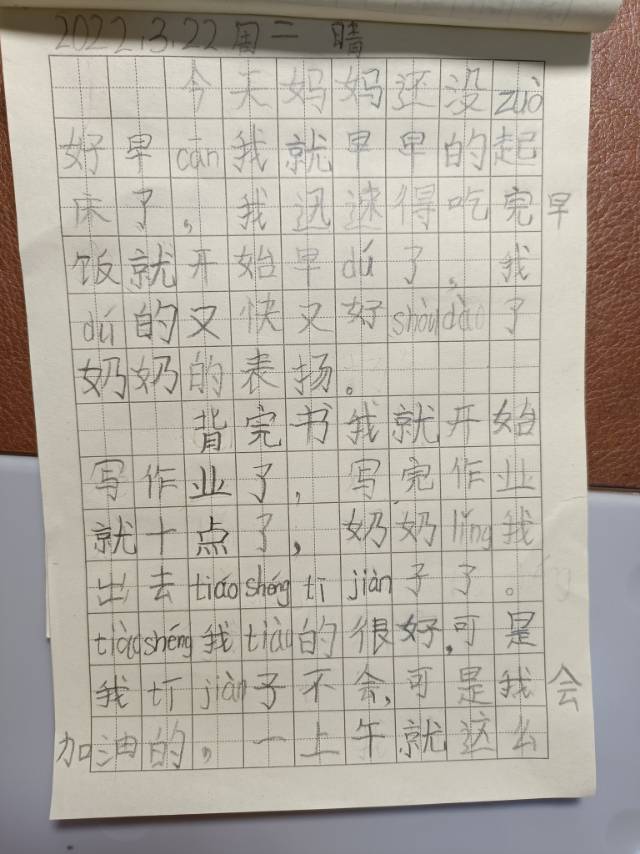 2022.3.22 周二 晴
今天妈妈还没zuò
好早cān我就早早的起
床了，我迅速得吃完早
饭就开始早dú了，我
dú的又快又好shòudào了
奶奶的表扬。
背完书我就开始
写作业了，写完作业
就十点了，奶奶lǐng我
出去tiáoshéng tī jiàn子了。
tiàoshéng我tiào的很好，可是
我tī jiàn子不会，可是我会
加油的，一上午就这么